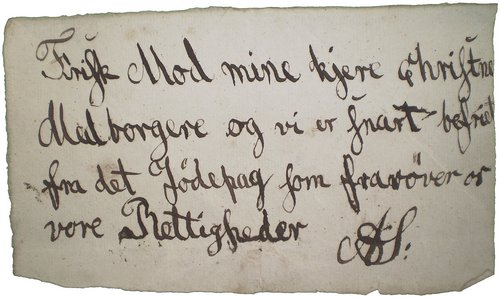 Frisk Mod mine kjere Christne
Medborgere og vi er snart befriet
fra det Jödepag som fraröver os
vore Rettigheder
AS: